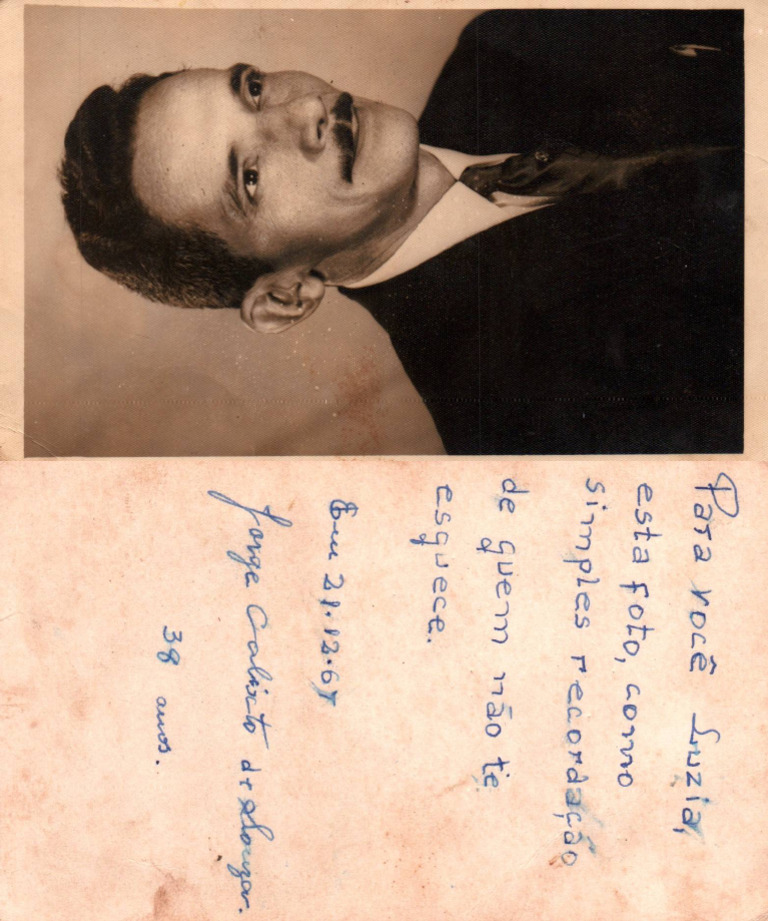 Para você Luzia,
esta foto, como
simples recordação
de quem não te
esquece.
Em 21.12.67
Jorge Calixto de Souza.
38 anos.